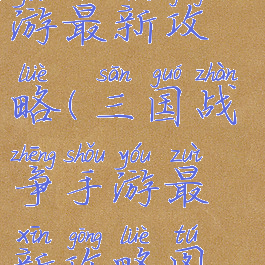 游最新攻
lüè sān guó zhàn
略(三国战
zhēng shǒu yóu zuì
争手游最
xīn gōng lüè tú
新攻略图